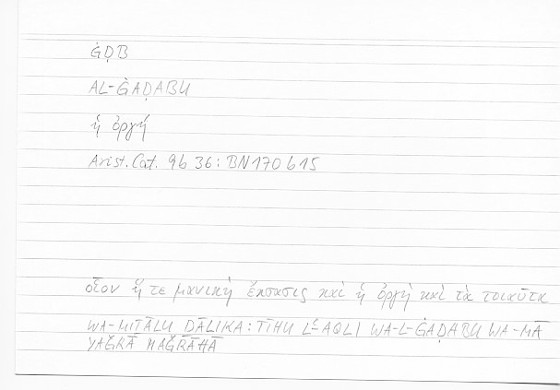 ĠḌB
AL-ĠAḌABU
ἡ ὀργή
Arist. Cat. 9b 36 : BN 170 b 15
οἷον ἥ τε μανικὴ ἔκστασις καὶ ἡ ὀργὴ καὶ τὰ τοιαῦτα
WA-MIṮĀLU ḎĀLIKA : TĪHU L-ʿAQLI WA-L-ĠAḌABU WA-MĀ
YAǦRĀ MAǦRĀHĀ